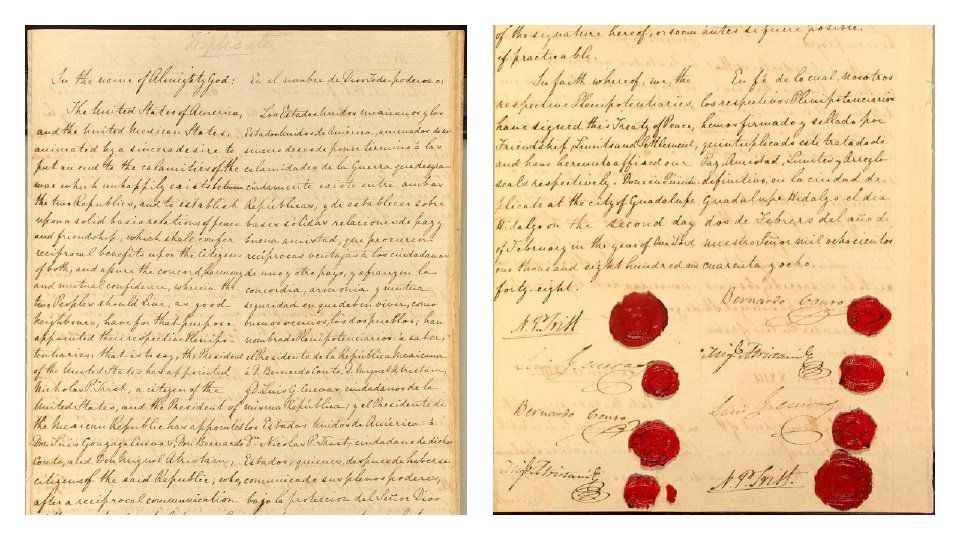 Triplicate
In the name of Almighty God:
The United States of America,
and the United Mexican States,
animated by a sincere desire to
put an end to the calamities of the
war which unhappily exists between
the two Republics, and to establish
upon a solid basis relations of peace
and friendship, which shall confer
reciprocal benefits upon the Citizens
of both, and assure the concord, harmony
and mutual confidence, wherein the
two Peoples should live, as good
Neighbours, have for that purpose
appointed their respective Plenipo-
tentiaries, that is to say, the President
of the United States has appointed
Nicholas P. Trist, a citizen of the
United States, and the President of
the Mexican Republic has appointed
Don Luis Gonzaga Cuevas, Don Bernardo
Couto, and Don Miguel Atristain,
citizens of the said Republic; who,
after a reciprocal communication
En el nombre de Dios Todo-poderoso:
Los Estados Unidos mexicanos y los
Estados Unidos de América, animados de un
sincero deseo de poner termino á las
calamidades de la Guerra que desgra-
ciadamente existe entre ambas
Repúblicas, y de establecer sobre
bases sólidas relaciones de paz y
buena amistad, que procuren
reciprocas ventajas á los ciudadanos
de uno y otro pays, y afianzen la
concordia, armonia y mutua
seguridad en que deben vivir, como
buenos vecinos, los dos pueblos; han
nombrado Plenipotenciarios: á saber,
el Presidente de la República mexicana
á D. Bernardo Couto, D. Miguel Atristain,
y D. Luis G. Cuevas, ciudadanos de la
misma República; y el Presidente de
los Estados Unidos de América á
Dn. Nicolas P. Trist, ciudadano de dichos
Estados; quienes, despues de haberse
comunicado sus plenos poderes,
bajo la proteccion del Señor Dios
of the signature hereof, or sooner
if practicable.
In faith whereof, we, the
respective Plenipotentiaries,
have signed this Treaty of Peace,
Friendship, Limits and Settlement,
and have hereunto affixed our
seals respectively. Done in Quintu-
plicate at the city of Guadalupe
Hidalgo on the second day
of February in the year of Our Lord
one thousand eight hundred and
forty-eight.
antes si fuere posible.
En fé de lo cual, nosotros
los respectivos Plenipotenciarios
hemos firmado y sellado por
quintuplicado este tratado de
Paz, Amistad, Límites y Arreglo
definitivo, en la ciudad de
Guadalupe Hidalgo el dia
dos de Febrero del año de
nuestro Señor mil ochocientos
cuarenta y ocho.
N. P. Trist
Luis G. Cuevas
Bernardo Couto
Migl. Atristain
Bernardo Couto
Migl. Atristain
Luis G. Cuevas
N. P. Trist.